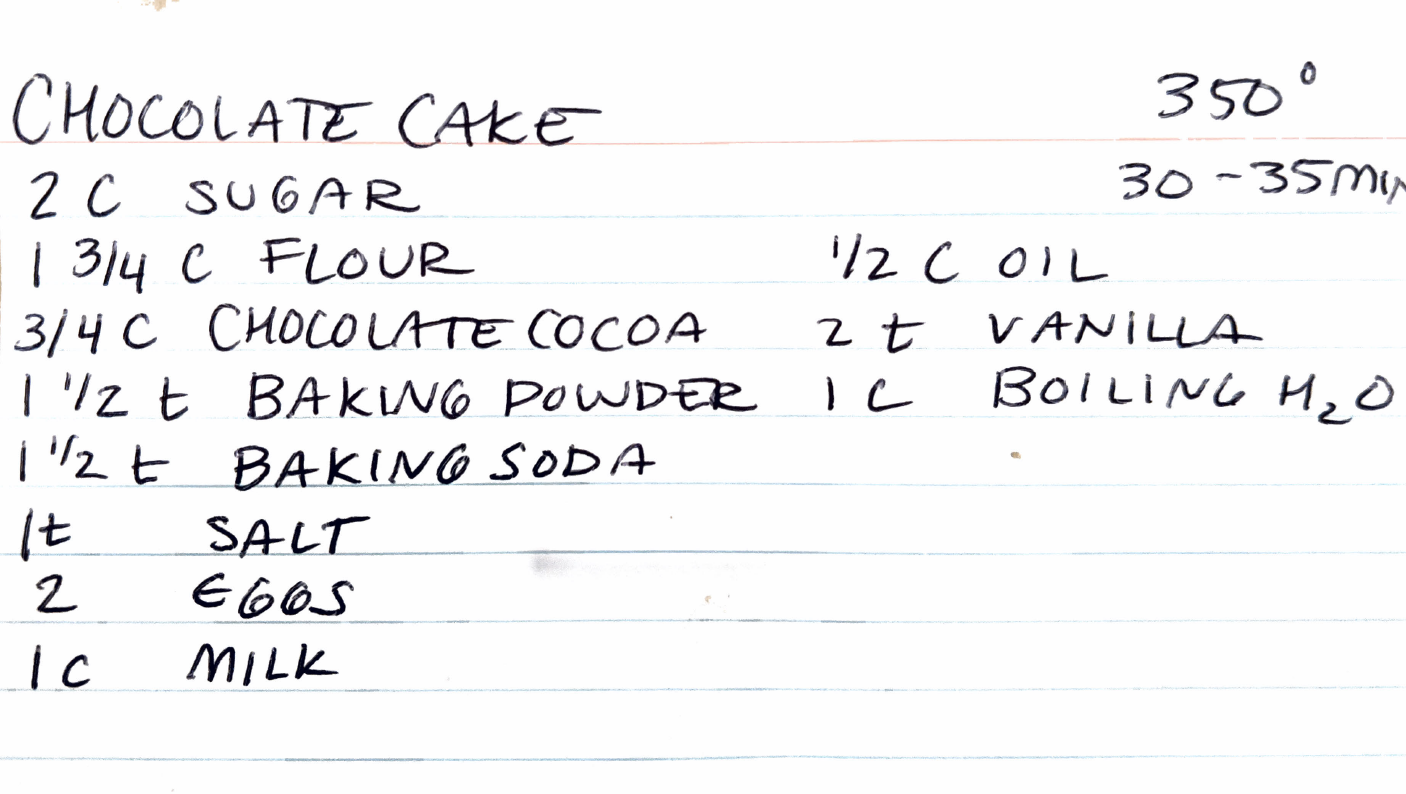 CHOCOLATE CAKE
350°
30-35 MIN
2 C SUGAR
1 3/4 C FLOUR
3/4 C CHOCOLATE COCOA
1 1/2 t BAKING POWDER
1 1/2 t BAKING SODA
1t SALT
2 EGGS
1 C MILK
1/2 C OIL
2 t VANILLA
1 C BOILING H₂O